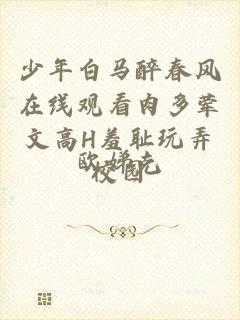 少年白马醉春风
在线观看肉多荤
文高H羞耻玩弄
校园
欧娣克